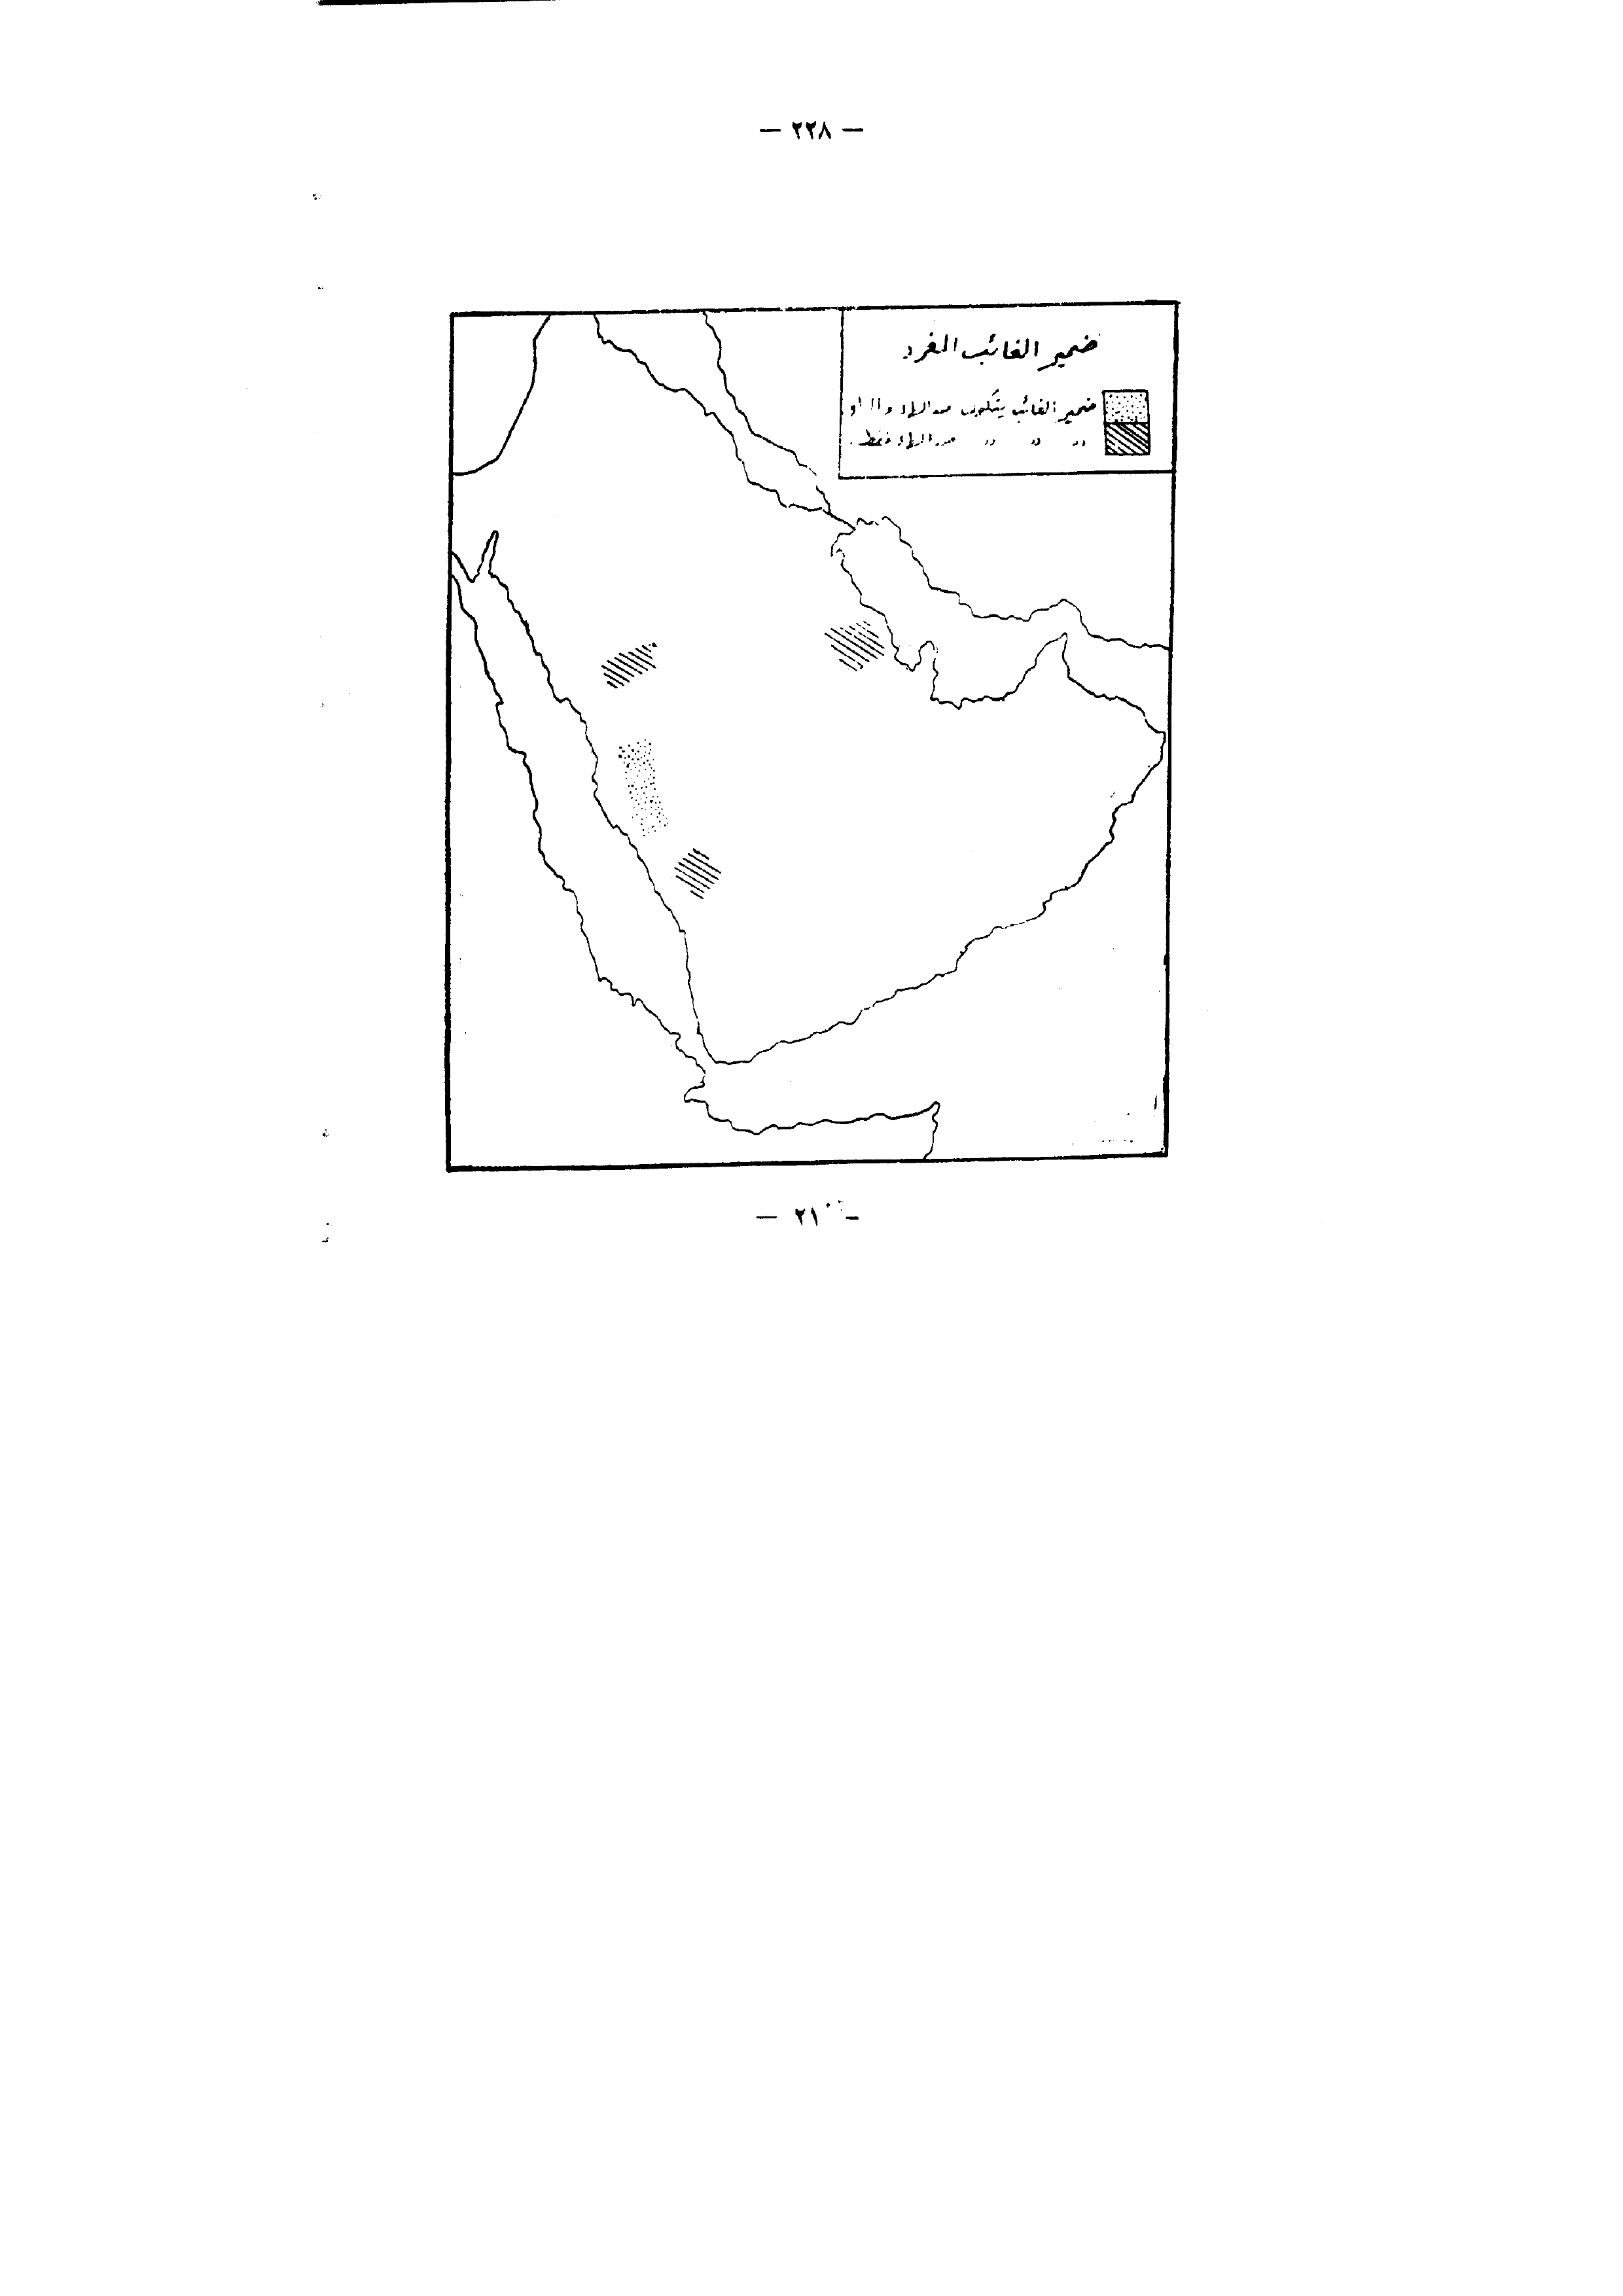 — ٢٢٨ —
ضمير الغائب المفرد
ضمير الغائب يتكون من الهاء والواو
〃 〃 〃 من الهاء فقط.
— ٢١ —